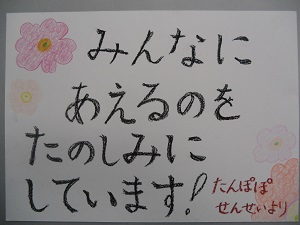 みんなに
あえるのを
たのしみに
しています!
たんぽぽ
せんせいより